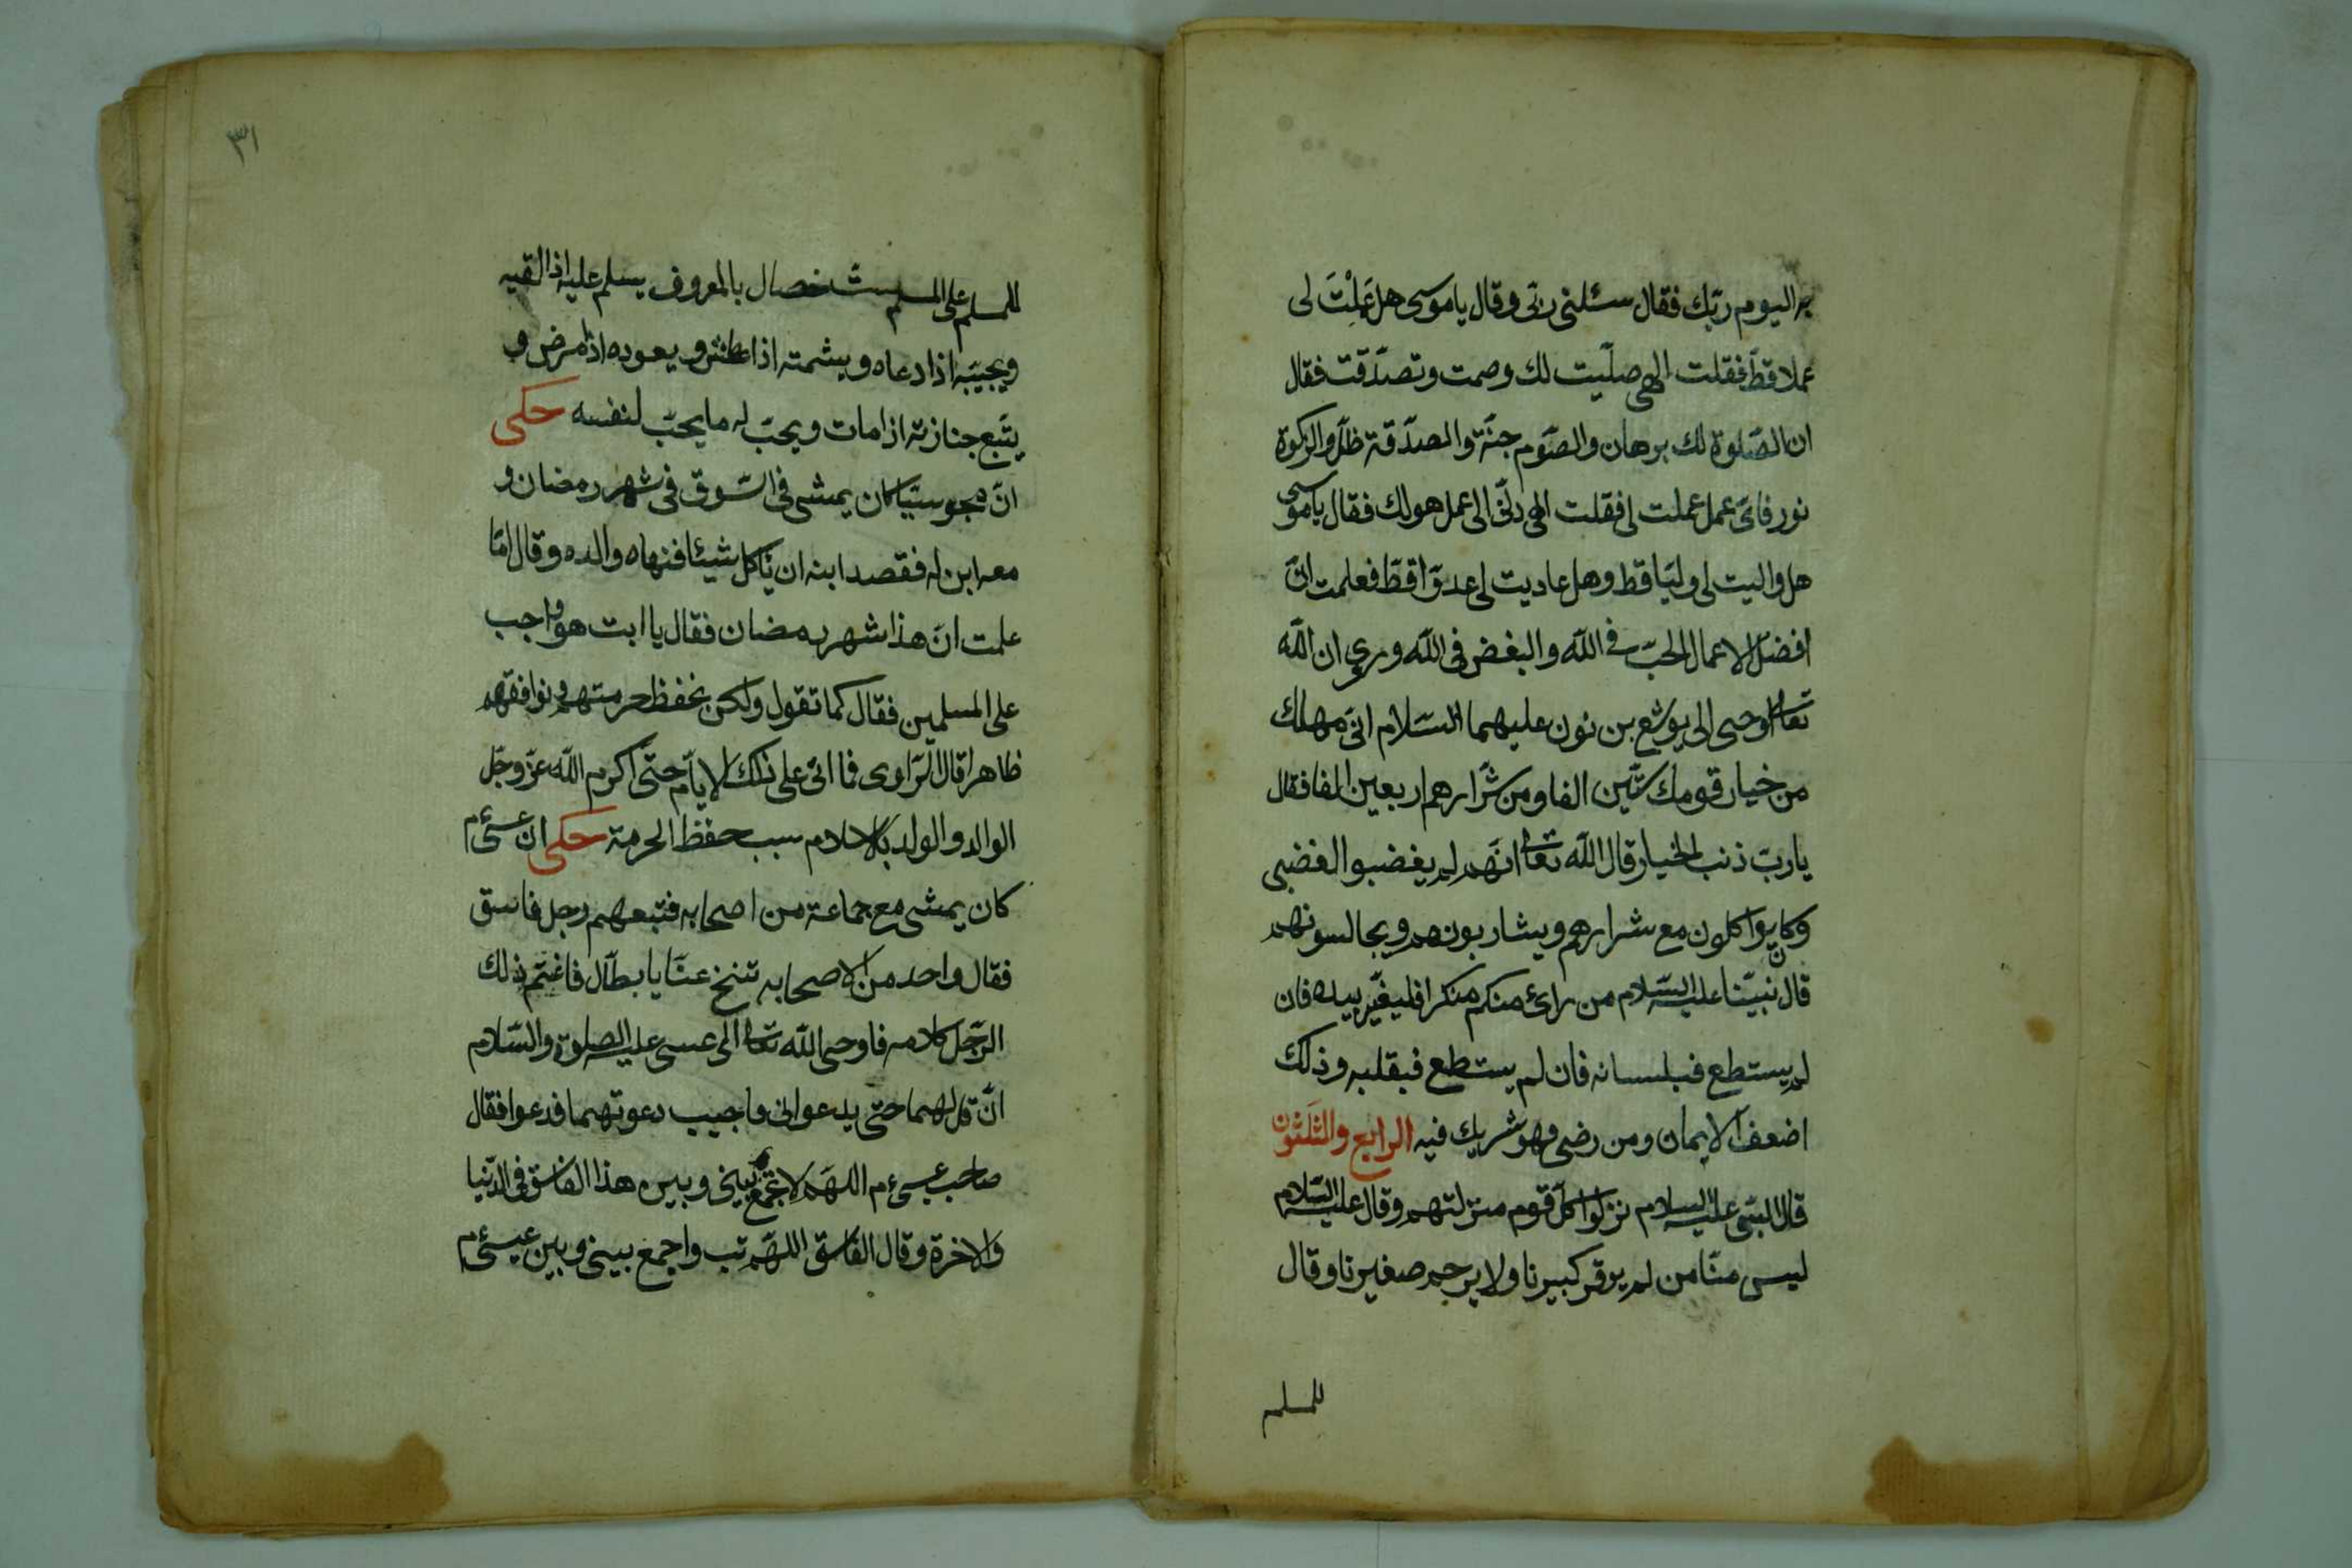 به اليوم ربّك فقال سئلنى ربّى وقال ياموسى هل عَمِلْتَ لى
عملا قطّ فقلت الهى صلّيت لك وصمت وتصدّقت فقال
ان الصّلوة لك برهان والصّوم جنّة والصدّقة ظلّ والزكوة
نور فاىّ عمل عملت لى فقلت الهى دلّنى الى عمل هو لك فقال ياموسى
هل واليت لى وليّا قط وهل عاديت لى عدوّا قطّ فعلمت انّ
افضل الاعمال الحبّ فى اللّه والبغض فى اللّه وروى ان اللّه
تعالى اوحى الى يوشع بن نون عليهما السّلام انّى مهلك
من خيار قومك ستّين الفا ومن شرارهم اربعين الفا فقال
ياربّ ذنب الخيار قال اللّه تعالى انّهم لم يغضبوا لغضبى
وكانوا يواكلون مع شرارهم ويشاربونهم ويجالسونهم
قال نبيّنا عليه السّلام من رائ منكم منكرا فليغيّر بيده فان
لم يستطع فبلسانه فان لم يستطع فبقلبه وذلك
اضعف الايمان ومن رضى فهو شريك فيه الرابع والثَلثون
قال النبى عليه السلام نزلوا كلّ قوم منزلتهم وقال عليه السّلام
ليس منّا من لم يوقر كبيرنا ولا يرحم صغيرنا وقال
للمسلم
٣١
للمسلم على المسلم ستّ خصال بالمعروف يسلم عليه اذا لقيه
ويجيبه اذا دعاه ويشمته اذا عطش ويعوده اذا مرض و
يتّبع جنازته اذا مات ويحبّ له ما يحبّ لنفسه حكى
انّ مجوسيّا كان يمشى فى السّوق فى شهر رمضان و
معه ابن له فقصد ابنه ان ياكل شيئا فنهاه والده وقال امّا
علمت انّ هذا شهر رمضان فقال يا ابت هو واجب
على المسلمين فقال كما تقول ولكن نحفظ حرمتهم ونوافقهم
ظاهرا قال الرّاوى فما اتى على ذلك الايّام حتّى اكرم اللّه عزّ وجلّ
الوالد والولد بالاسلام سبب حفظ الحرمة حكى ان عيسىٰ ءم
كان يمشى مع جماعة من اصحابه فتبعهم رجل فاسق
فقال واحد من الاصحابه تنح عنّا يا بطّال فاغتم بذلك
الرّجل كلامه فاوحى اللّه تعالى الى عيسى عليه الصلوة والسّلام
انّ قل لهما حتى يدعوانى واجيب دعوتهما فدعوا فقال
صاحب عيسىٰ ءم اللهمّ لا تجمع بينى وبين هذا الفاسق فى الدّنيا
والاخرة وقال الفاسق اللهمّ تب واجمع بينى وبين عيسىٰ ءم